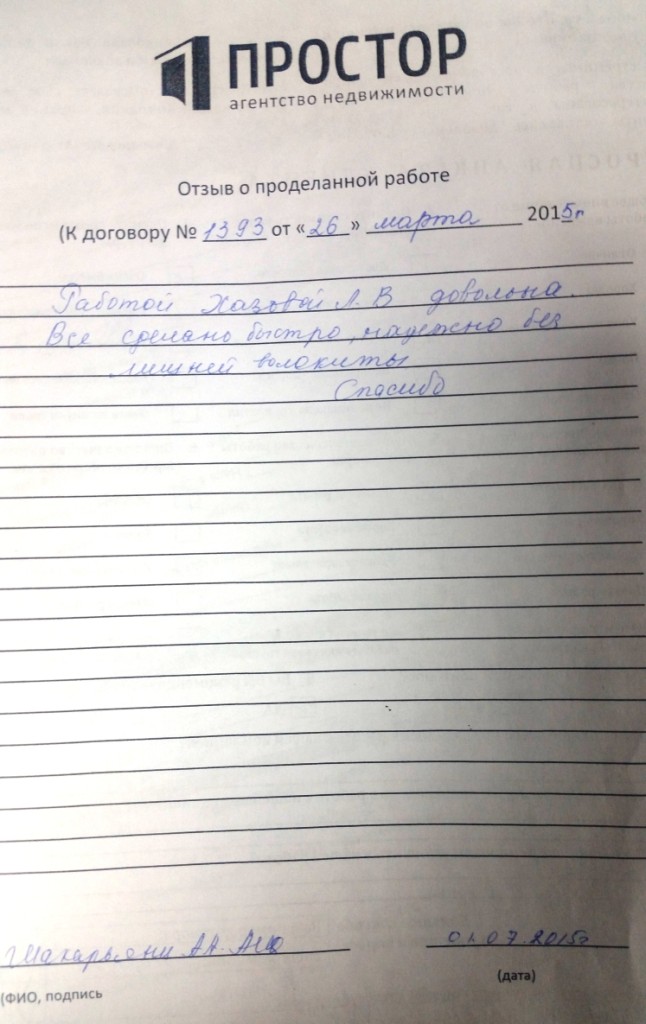 ПРОСТОР
агентство недвижимости
Отзыв о проделанной работе
(К договору № 1393 от «26» марта 2015г
Работой Хазовой Л. В довольна.
Все сделано быстро, надежно без
лишней волокиты
Спасибо
А.А.
01.07.2015г
(дата)
(ФИО, подпись